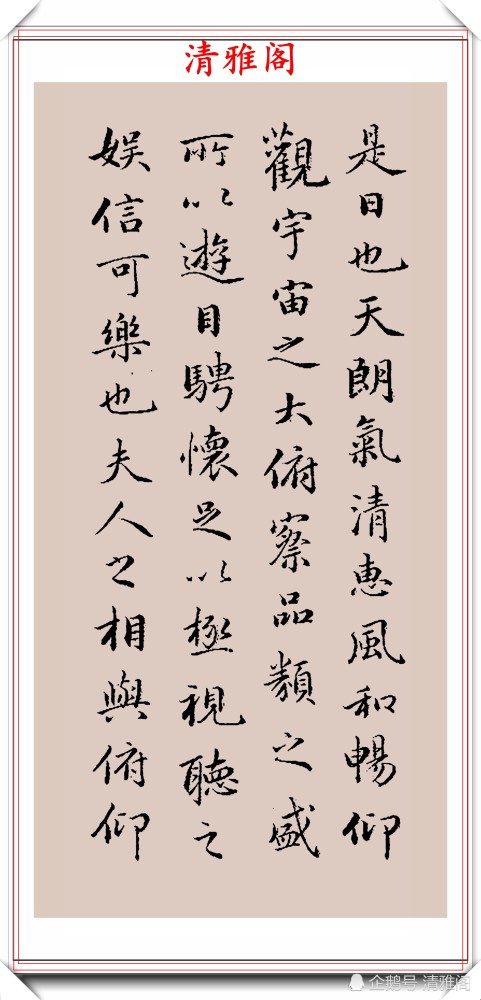 清雅阁
是日也天朗氣清惠風和暢仰
觀宇宙之大俯察品類之盛
所以遊目騁懷足以極視聽之
娱信可樂也夫人之相與俯仰
企鹅号 清雅阁